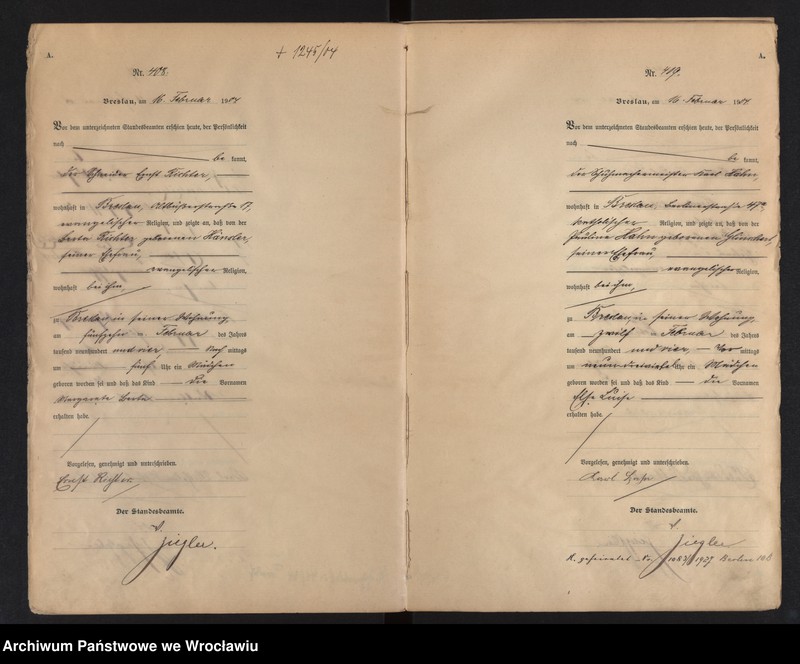 A.
+ 1245/04
Nr. 408.
Breslau, am 16. Februar 1904
Vor dem unterzeichneten Standesbeamten erschien heute, der Persönlichkeit
nach
be kannt,
der Schneider Ernst Richter,
wohnhaft in Breslau, 17,
evangelischer Religion, und zeigte an, daß von der
Berta Richter geborenen Händler,
seiner Ehefrau,
evangelischer Religion,
wohnhaft bei ihm,
zu Breslau in seiner Wohnung,
am fünfzehn ten Februar des Jahres
tausend neunhundert und vier Nach mittags
um fünf Uhr ein Mädchen
geboren worden sei und daß das Kind die Vornamen
Margarete Berta
erhalten habe.
Vorgelesen, genehmigt und unterschrieben.
Ernst Richter
Der Standesbeamte.
Ziegler.
A.
Nr. 409.
Breslau, am 16. Februar 1904
Vor dem unterzeichneten Standesbeamten erschien heute, der Persönlichkeit
nach
be kannt,
der Schuhmachermeister Karl Hahn,
wohnhaft in Breslau,
katholischer Religion, und zeigte an, daß von der
Pauline Hahn geborenen
seiner Ehefrau,
evangelischer Religion,
wohnhaft bei ihm,
zu Breslau in seiner Wohnung,
am zwölf ten Februar des Jahres
tausend neunhundert und vier, Vor mittags
um neun dreiviertel Uhr ein Mädchen
geboren worden sei und daß das Kind die Vornamen
Else Luise
erhalten habe.
Vorgelesen, genehmigt und unterschrieben.
Karl Hahn
Der Standesbeamte.
Ziegler
geheiratet Nr. 1937 Berlin
Archiwum Państwowe we Wrocławiu